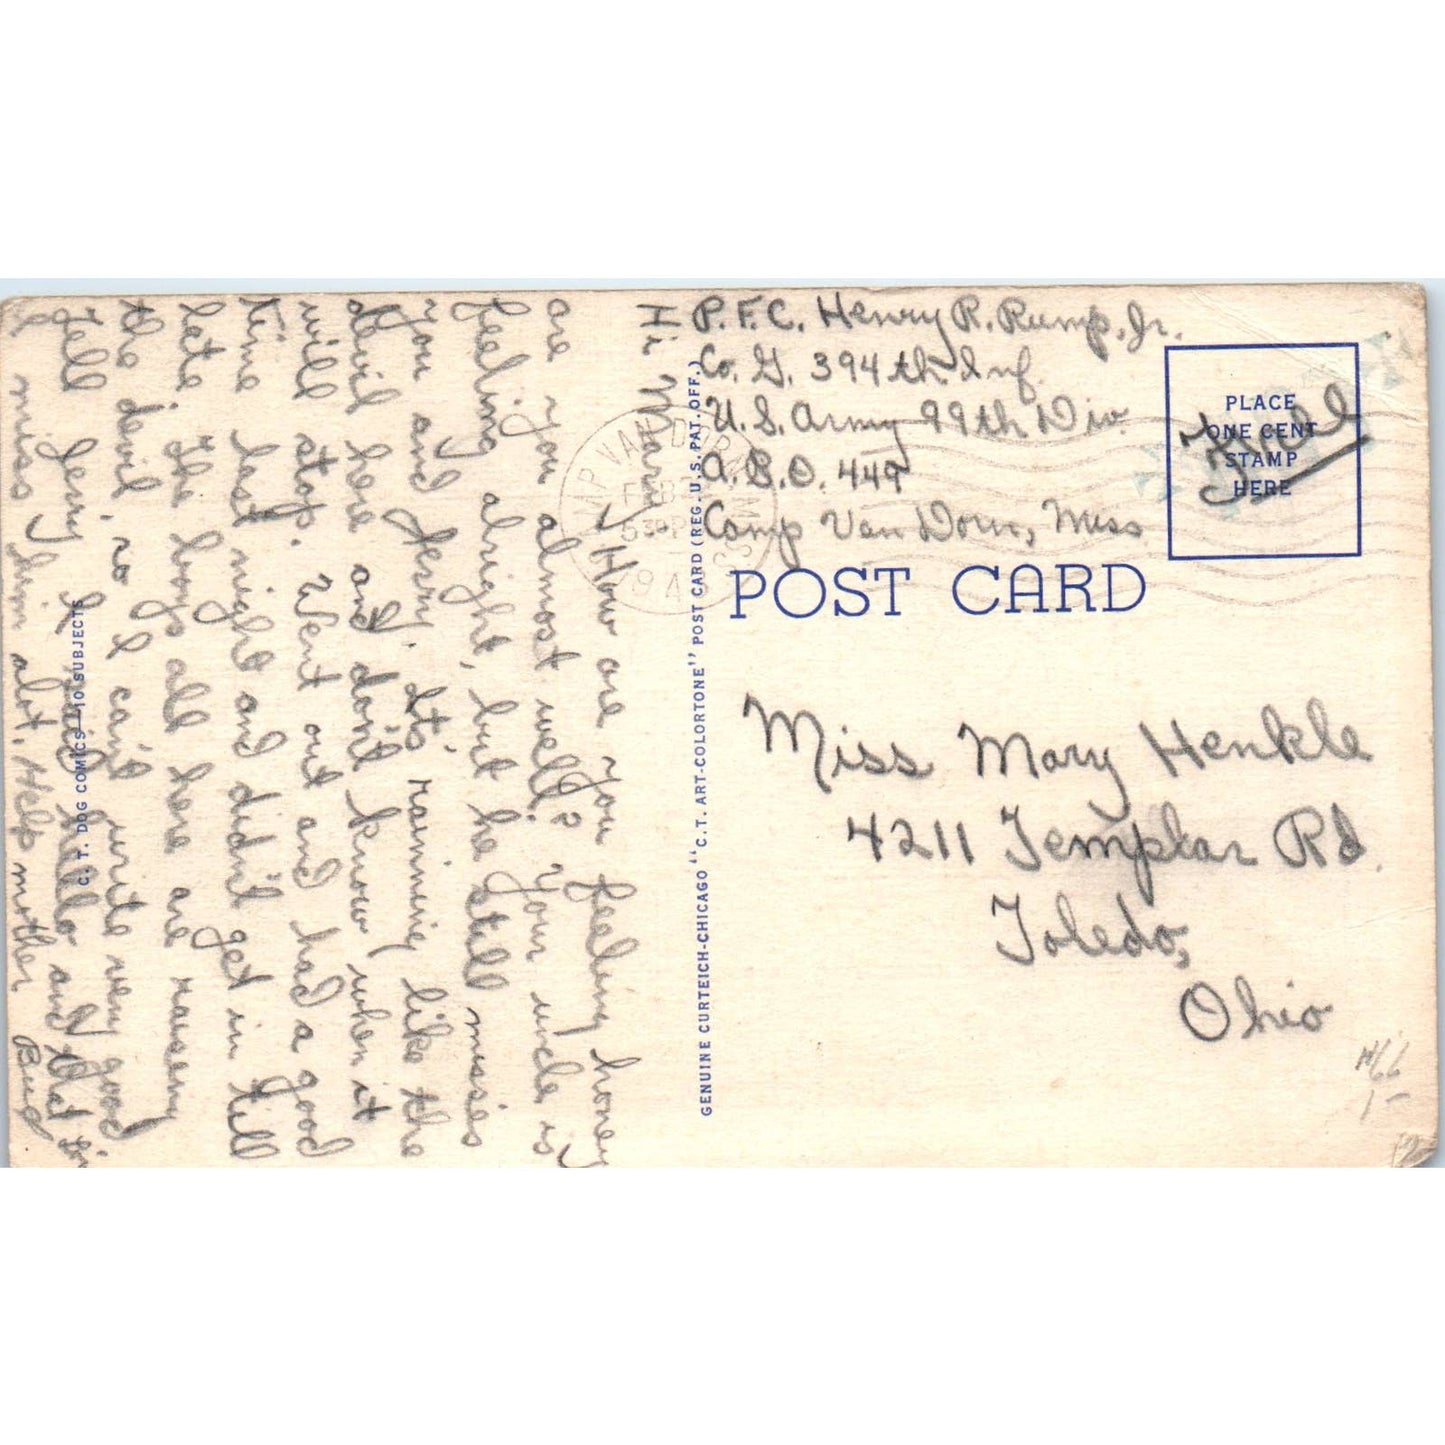 P.F.C. Henry R. Rump, Jr.
Co. G. 394th Inf.
U.S. Army 99th Div.
A.P.O. 449
Camp Van Dorn, Miss
PLACE
ONE CENT
STAMP
HERE
Free
CAMP VAN DORN
FEB
530 PM
194
MISS
POST CARD
Miss Mary Henkle
4211 Templar Rd.
Toledo,
Ohio
GENUINE CURTEICH-CHICAGO "C.T. ART-COLORTONE" POST CARD (REG. U.S. PAT. OFF.)
C. T. DOG COMICS—10 SUBJECTS
Hi Mary,
How are you feeling honey
are you almost well? Your uncle is
feeling alright, but he still misses
you and Jerry. It's raining like the
devil here and don't know when it
will stop. Went out and had a good
time last night and didn't get in till
late. The boys all here are raiseny
the devil, so I can't write very good
Tell Jerry I said hello and that
I miss him alot. Help mother
Bud